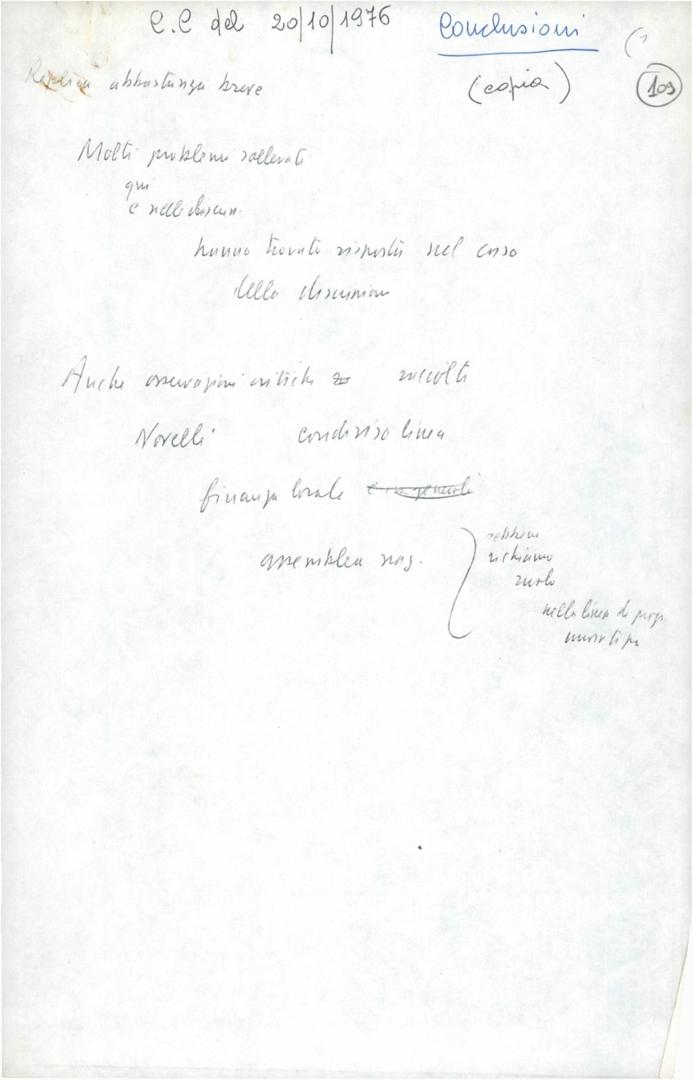 C.C del 20/10/1976 Conclusioni
(copia) 109
Replica abbastanza breve
Molti problemi sollevati
qui
e nelle discuss.
hanno trovato risposta nel corso
della discussione
Anche osservazioni critiche raccolte
Novelli condiviso linea
finanza locale e in generale
assemblea naz.
richiamo
ruolo
nella linea di